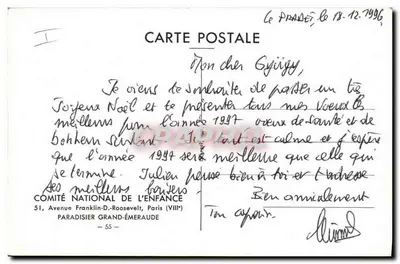 Le PRADET, le 18-12-1996
I
CARTE POSTALE
Mon cher
Je viens te souhaiter de passer un très
Joyeux Noël et te présenter tous mes voeux les
meilleurs pour l'année 1997 voeux de santé et de
bonheur surtout. Ici tout est calme et j'espère
que l'année 1997 sera meilleure que celle qui
se termine. Julien pense bien à toi et t'adresse
ses meilleurs baisers.
Bien amicalement
COMITÉ NATIONAL DE L'ENFANCE
51, Avenue Franklin-D.-Roosevelt, Paris (VIIIe)
PARADISIER GRAND-ÉMERAUDE
— 55 —
Ton